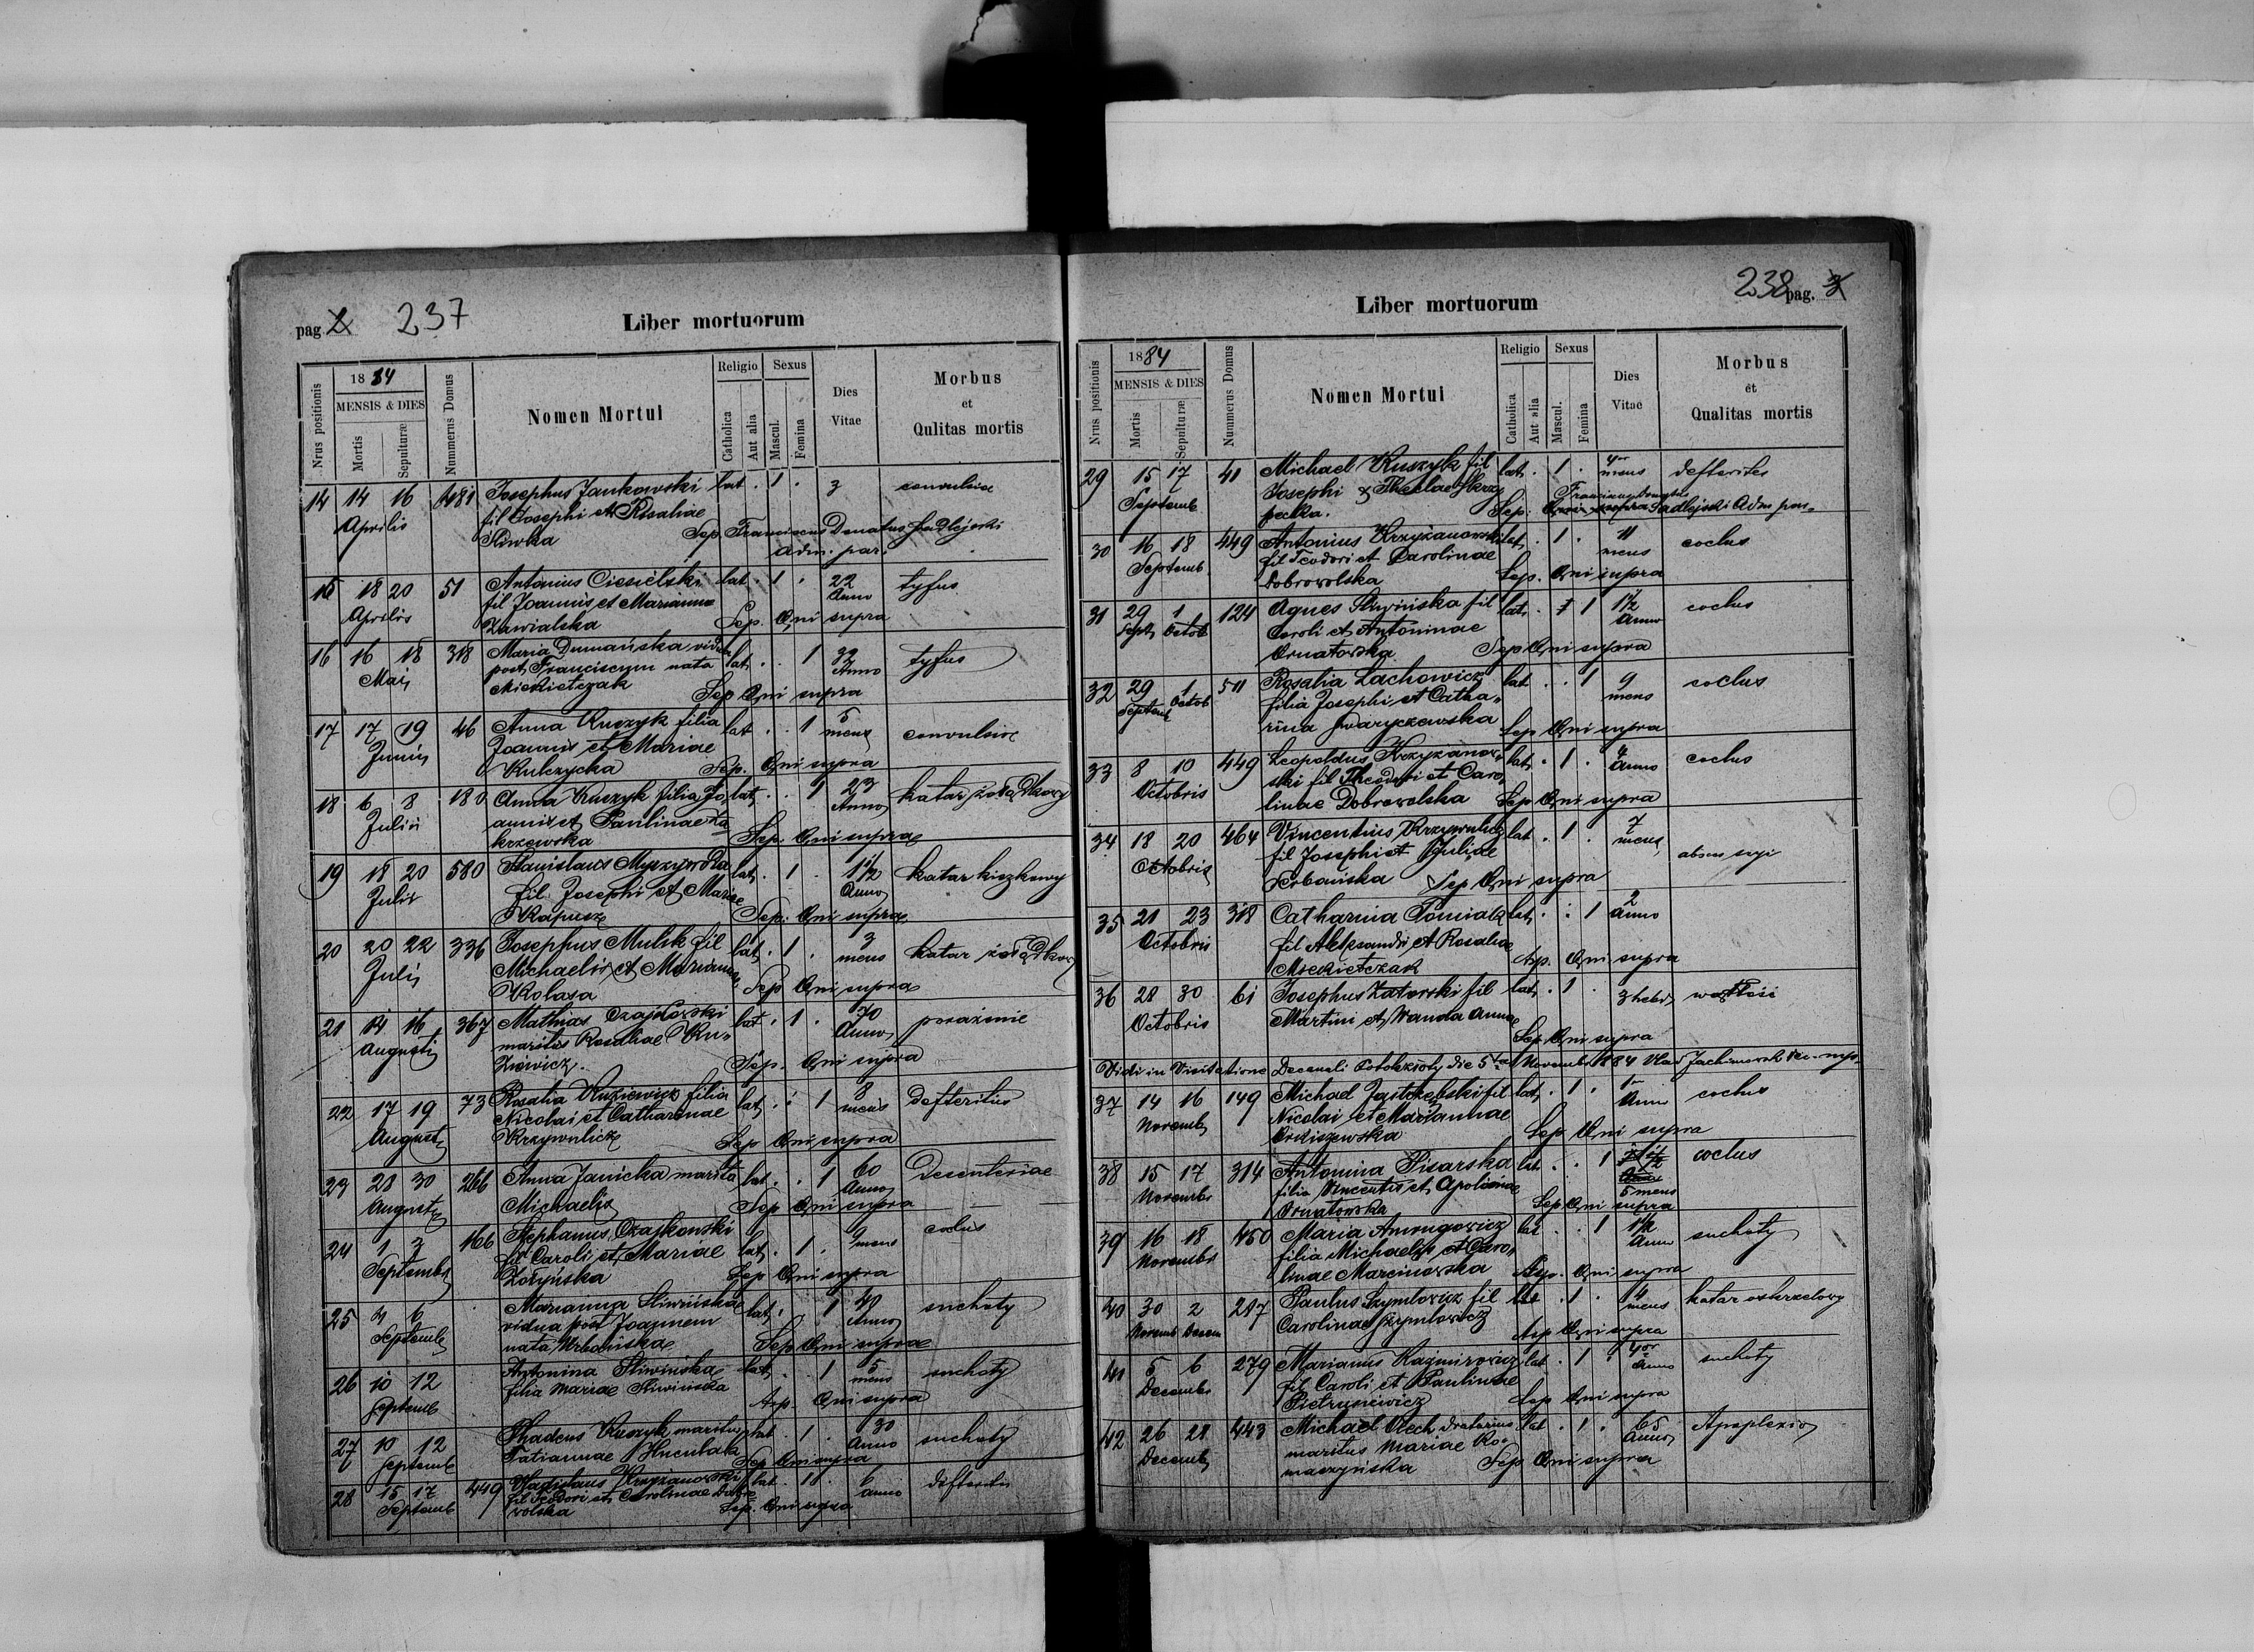 pag 2 237
Liber mortuorum
Nrus positionis
1884
MENSIS & DIES
Mortis
Sepulturæ
Nummerus Domus
Nomen Mortui
Religio
Catholica
Aut alia
Sexus
Mascul.
Femina
Dies
Vitae
Morbus
et
Qulitas mortis
14 14 16 481 Josephus Jankowski lat . 1 . 3 convulsio
Aprilis fil Josephi et Rosaliae
Sliwka Sep. Franciscus Donatus Sadlejski
Adm. par.
15 18 20 51 Antonius Ciesielski lat . 1 . 22 tyfus
Aprilis fil Joannis et Marianna Anno
Zawialska Sep. Qni supra
16 16 18 318 Maria Dumańska vidua lat . . 1 32 tyfus
Maj post Franciscum nata Anno
Mickietczak Sep Qni supra
17 17 19 46 Anna Kuszyk filia lat . . 1 5 convulsio
Junii Joannis et Mariae mens
Kulczycka Sep. Qni supra
18 6 8 180 Anna Kuszyk filia Jo lat . . 1 23 katar żołądkowy
Julii annis et Paulinae Za Anno
krzewska Sep. Qni supra
19 18 20 580 Stanislaus lat . 1 . 1 1/2 katar kiszkowy
Julii fil. Josephi et Mariae Anno
Kapusz Sep. Qni supra
20 20 22 336 Josephus Mulsk fil lat . 1 . 3 katar żołądkowy
Julij Michaelis et Mariannae mens
Kolasa Sep Qni supra
21 14 16 367 Mathias Czajkowski lat . 1 . 70 porażenie
Augusti maritus Rosaliae Ku- Anno
ziewicz. Sep. Qni supra
22 17 19 73 Rosalia Kuziewicz filia lat . . 1 8 defteritis
August Nicolai et Catharinae mens
Krzywulicz Sep Qni supra
23 28 30 266 Anna Janicka marita lat . . 1 60 Desenteriae
August Michaelis Anno
Sep Qni supra
24 1 3 166 Stephanus Czajkowski lat . 1 . 9 coclus
Septembr fil Caroli et Mariae mens
Żołyńska Sep Qni supra
25 4 6 Marianna Sliwińska lat . . 1 40 suchoty
Septemb vidua post Joannem Anno
nata Urbańska Sep Qni supra
26 10 12 Antonina Sliwińska lat . . 1 5 suchoty
Septemb filia Mariae Sliwińska mens
Sep. Qni supra
27 10 12 Thadeus Kuszyk maritus lat . 1 . 30 suchoty
Septemb Tatiannae Huculak Anno
Sep Qni supra
28 15 17 449 Vladislaus Krzyżanowski lat . 1 . 6 difteritis
Septemb fil Teodori et Carolinae Dobro anno
wolska Sep. Qni supra
238 pag. 3
Liber mortuorum
Nrus positionis
1884
MENSIS & DIES
Mortis
Sepulturæ
Nummerus Domus
Nomen Mortui
Religio
Catholica
Aut alia
Sexus
Mascul.
Femina
Dies
Vitae
Morbus
et
Qualitas mortis
29 15 17 41 Michael Kuszyk fil lat . 1 . 4or defterites
Septemb Josephi & Theclae Skrzy mens
pecka. Sep. Franciscus Donatus Sadlejski Adm par.
30 16 18 449 Antonius Krzyżanowski lat . 1 . 11 coclus
Septemb fil Teodori et Carolinae mens
Dobrowolska Sep. Qni supra
31 29 1 124 Agnes Sliwińska fil lat . 1 1 1/2 coclus
Sept Octob Caroli et Antoninae Anno
Ornatowska Sep Qni supra
32 29 1 511 Rosalia Lachowicz lat . . 1 9 coclus
Septemb Octob filia Josephi et Catha- mens
rina Sep Qni supra
33 8 10 449 Leopoldus Krzyżanow- lat . 1 . 4 coclus
Octobris ski fil Theodori et Caro Anno
linae Dobrowolska Sep Qni supra
34 18 20 464 Vincentius Krzywulicz lat . 1 . 7
Octobris fil Josephi et Juliae mens
Serbańska Sep Qni supra
35 21 23 318 Catharina lat . . 1 2
Octobris fil Aleksandri et Rosaliae Anno
Mickietczak Sep. Qni supra
36 28 30 61 Josephus Zatorski fil lat . 1 . 3 hebd wątłość
Octobris Martini et Wanda Anna
Sep Qni supra
Vidi in Visitatione Decanali die 5ta Novembr 1884
37 14 16 149 Michael fil lat . 1 . 1 coclus
Novemb Nicolai et Mariannae Anno
Sep Qni supra
38 15 17 314 Antonina Pisarska lat . . 1 coclus
Novembr filia Vincentii et Apolinae 5 mens
Ornatowska Sep Qni supra
39 16 18 450 Maria lat . . 1 1 1/2 suchoty
Novembr filia Michaelis et Caro Anno
linae Marcinowska Sep. Qni supra
40 30 2 297 Paulus Szymłowicz fil lat . 1 . 4 katar oskrzelowy
Novemb Decem Carolinae Szymłowicz mens
Sep Qni supra
41 5 6 279 Marianus Kazmirowicz lat . 1 . 4or suchoty
Decembr fil Caroli et Paulinae Anno
Pietrusiewicz Sep Qni supra
42 26 28 443 Michael lat . 1 . 65 Apoplexio
Decemb maritus Mariae Ro- Anno
maszyńska Sep Qni supra